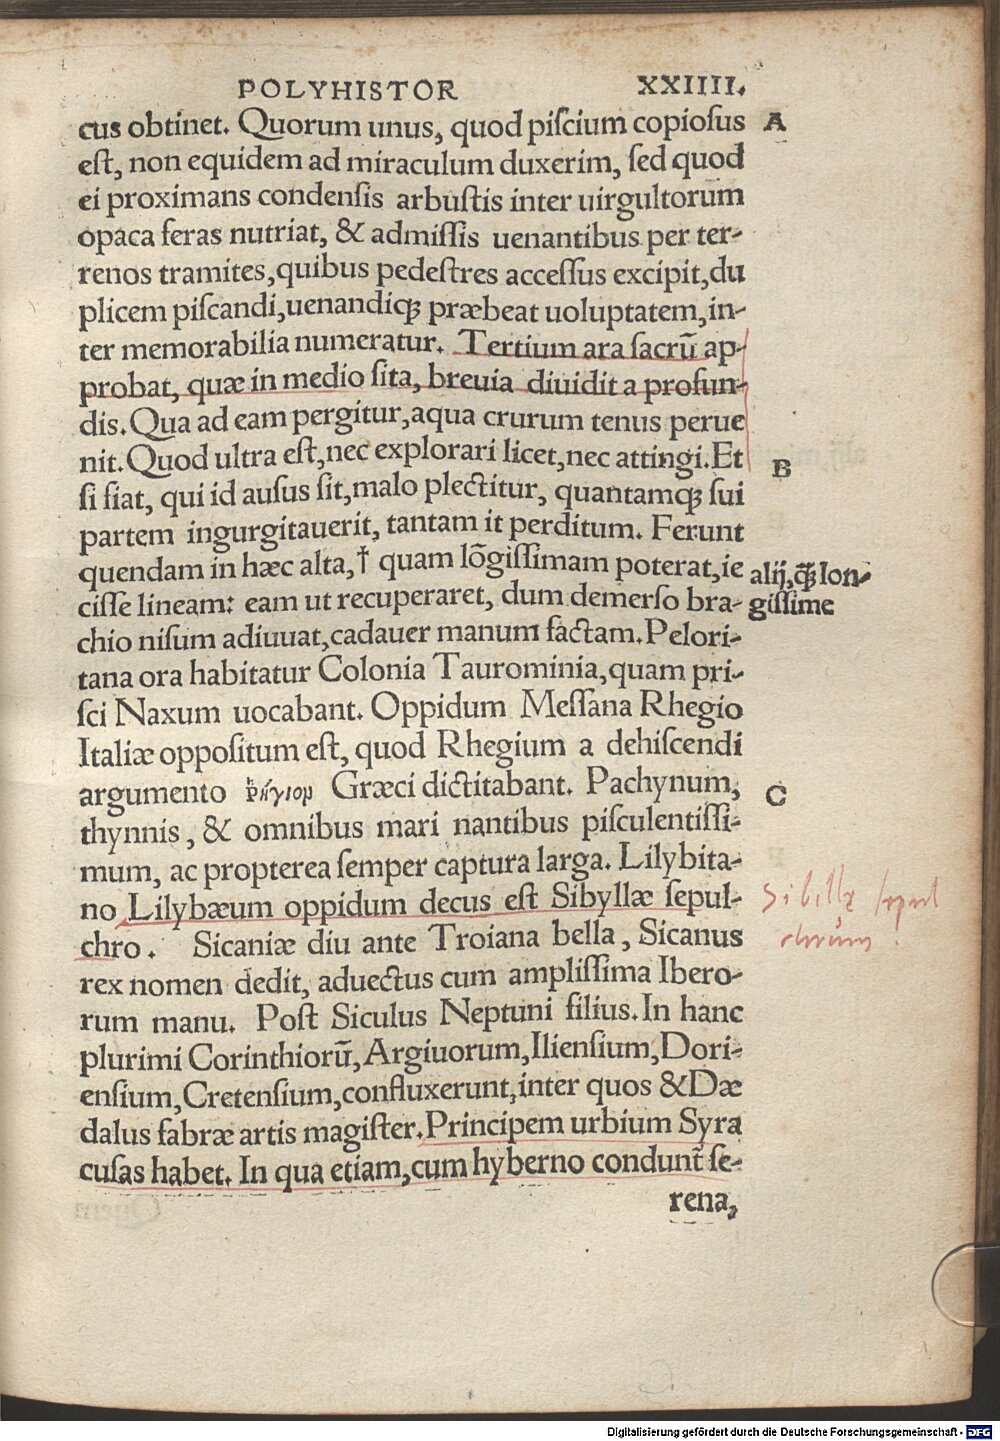 POLYHISTOR XXIIII.
cus obtinet. Quorum unus, quod piſcium copioſus A
eſt, non equidem ad miraculum duxerim, ſed quod
ei proximans condenſis arbuſtis inter uirgultorum
opaca feras nutriat, & admiſſis uenantibus per ter-
renos tramites, quibus pedeſtres acceſſus excipit, du
plicem piſcandi, uenandiqꝫ præbeat uoluptatem, in-
ter memorabilia numeratur. Tertium ara ſacrũ ap-
probat, quæ in medio ſita, breuia diuidit a profun-
dis. Qua ad eam pergitur, aqua crurum tenus perue
nit. Quod ultra eſt, nec explorari licet, nec attingi. Et B
ſi fiat, qui id auſus ſit, malo plectitur, quantamqꝫ ſui
partem ingurgitauerit, tantam it perditum. Ferunt
quendam in hæc alta, † quam lõgiſſimam poterat, ie alij, q̃ꝫ lon-
ciſſe lineam: eam ut recuperaret, dum demerſo bra- giſſime
chio niſum adiuuat, cadauer manum factam. Pelori-
tana ora habitatur Colonia Taurominia, quam pri-
ſci Naxum uocabant. Oppidum Meſſana Rhegio
Italiæ oppoſitum eſt, quod Rhegium a dehiſcendi
argumento ῥήγιομ Græci dictitabant. Pachynum, C
thynnis, & omnibus mari nantibus piſculentiſſi-
mum, ac propterea ſemper captura larga. Lilybita-
no Lilybæum oppidum decus eſt Sibyllæ ſepul- Sibillæ ſepul
chro. Sicaniæ diu ante Troiana bella, Sicanus chrum
rex nomen dedit, aduectus cum ampliſſima Ibero-
rum manu. Poſt Siculus Neptuni filius. In hanc
plurimi Corinthiorũ, Argiuorum, Ilienſium, Dori-
enſium, Cretenſium, confluxerunt, inter quos & Dæ
dalus fabræ artis magiſter. Principem urbium Syra
cuſas habet. In qua etiam, cum hyberno condunt̃ ſe-
rena,
Digitalisierung gefördert durch die Deutsche Forschungsgemeinschaft - DFG